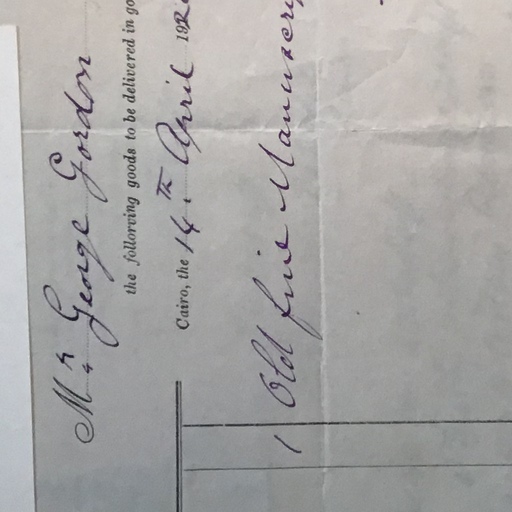 Mr George Gordon
the follorving goods to be delivered in go
Cairo, the 14th April 192
1 Old fine Manuscry